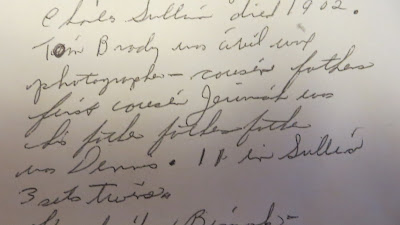 Charles Sullivan died 1902.
Tom Brady was civil war
photographer - cousin fathers
first cousin Jerimiah was
his father father-father
was Dennis. 11 in Sullivan
3 sets twins.